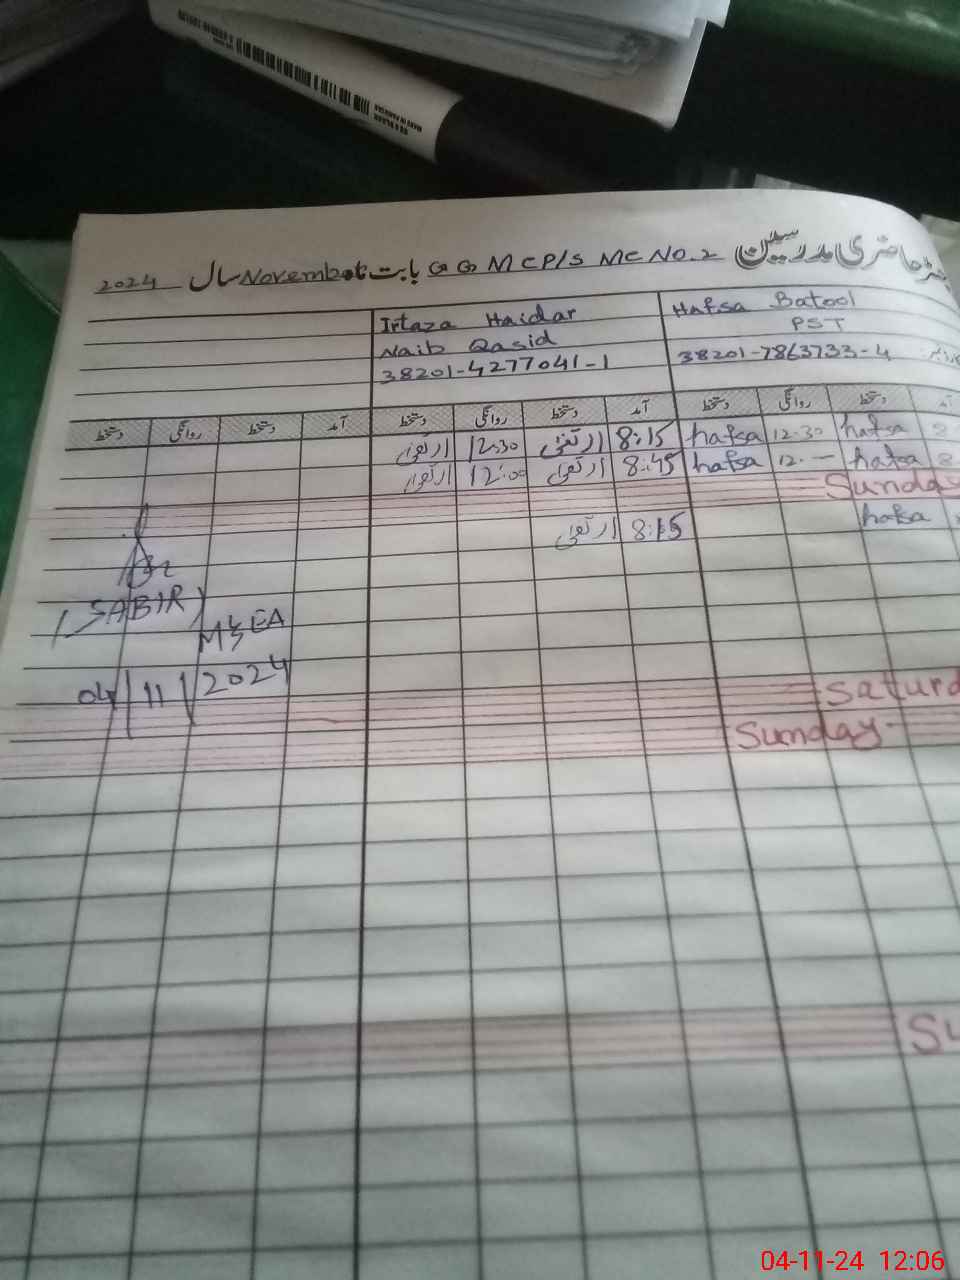 حاضری مدرسین GG MCP/S MC NO.2 بابت ماہ November سال 2024
Hafsa Batool
PST
38201-7863733-4
Irtaza Haidar
Naib Qasid
38201-4277041-1
آمد دستخط روانگی دستخط آمد دستخط روانگی دستخط آمد دستخط روانگی دستخط
8 hafsa 12.30 hafsa 8:15 ارتضیٰ 12:30 ارتضیٰ
8 hafsa 12.— hafsa 8:45 ارتضیٰ 12:00 ارتضیٰ
Sunday
hafsa 8:15 ارتضیٰ
(SABIR)
M&EA
04/11/2024
Saturd
Sunday
Su
MADE IN PAKISTAN
04-11-24 12:06